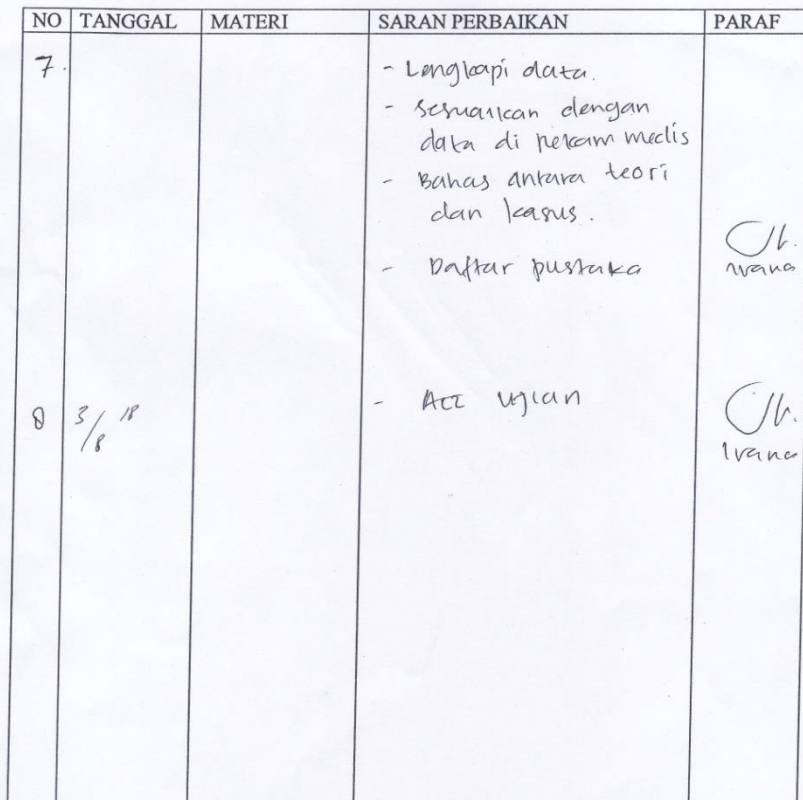 NO TANGGAL MATERI SARAN PERBAIKAN PARAF
7.
- Lengkapi data.
- sesuaikan dengan
data di rekam medis
- Bahas antara teori
dan kasus.
- Daftar pustaka
Ivana
8 3/8 18 - ACC Ujian
Ivana